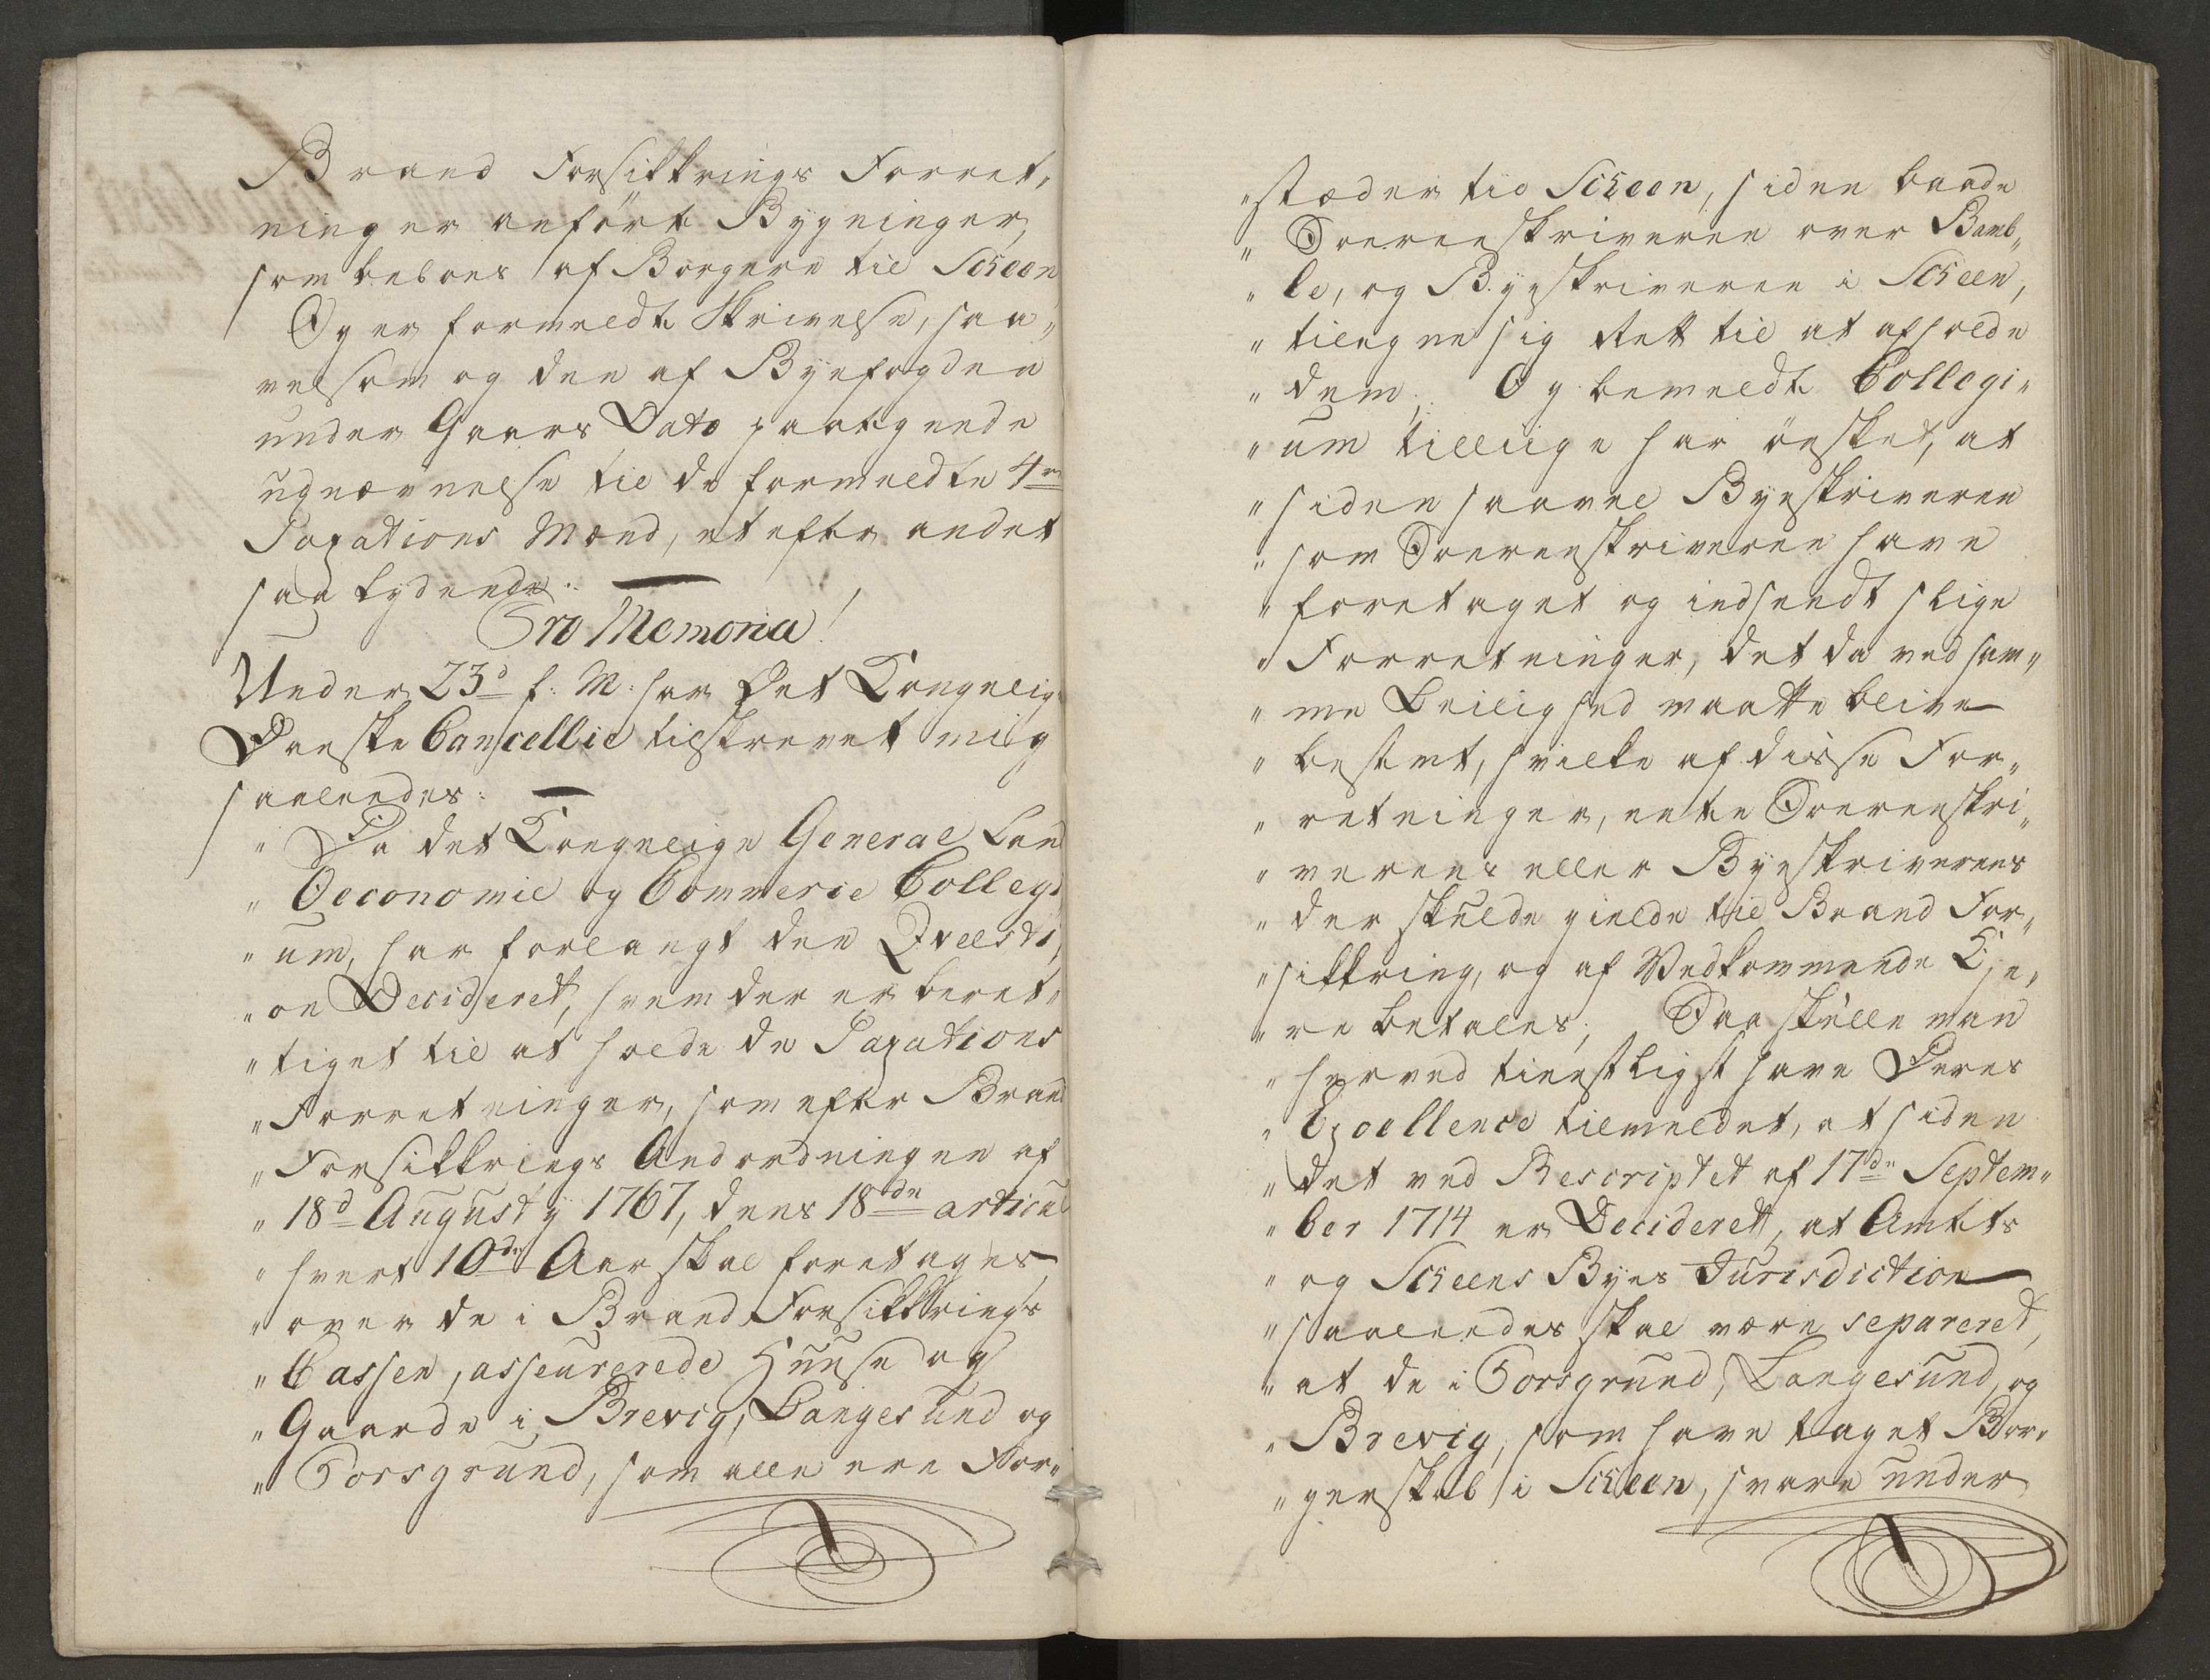 Brand Forsikkrings Forret,
ninger anført Bygninger,
som beboes af Borgere til Scheen
Og er formeldte Skrivelse, saa,,
velsom og den af Byefogden
under Gaars Dato paategnede
udnævnelse til de formeldte 4re
Taxations Mænd, et efter andet
saa lydende:
Pro Memoria!
Under 23d f: M: har Det Kongelig
Danske Cancellie tilskrevet mig
saaledes:
" Da det Kongelige General Land
" Oeconomie og Commerce Collegi
" um, har forlangt den Qvæsti,
" on Decideret, hvem der er beret,,
" tiget til at holde de Taxations
" Forretninger, som efter Brand
" Forsikkrings Anordningen af
" 18d Augusty 1767, dens 18de articul
" hvert 10de Aar skal foretages
" over de i Brand Forsikkrings
" Cassen, asseurerede Huuse og
" Gaarde i Brevig, Langesund og
" Porsgrund, som alle ere For,,
" stæder til Scheen, siden baade
" Soerenskriveren over Bamb,,
" le, og Byeskriveren i Scheen,
" tilegne sig Rett til at afholde
" dem; Og bemeldte Collegi,,
" um tilliige har ønsket, at
" siden saavel Byeskriveren
" som Sorenskriveren have
" foretaget og indsendt slige
" Forretninger, det da ved sam,,
" me Leilighed maatte blive
" bestemt, hvilke af disse For,,
" retninger, enten Sorenskri,,
" verens eller Byeskriverens
" der skulde gielde til Brand For,,
" sikkring, og af Vedkommende Eje,
" re betales; Saa skulle man
" herved tienstligst have Deres
" Excellence tilmeldet, at siden
" det ved Rescriptet af 17de Septem,,
" ber 1714 er Decideret, at Amtets
" og Scheens Byes Jurisdiction
" saaledes skal være separeret,
" at de i Porsgrund, Langesund, og
" Brevig, som have taget Bor,
" gerskab i Scheen, svare under